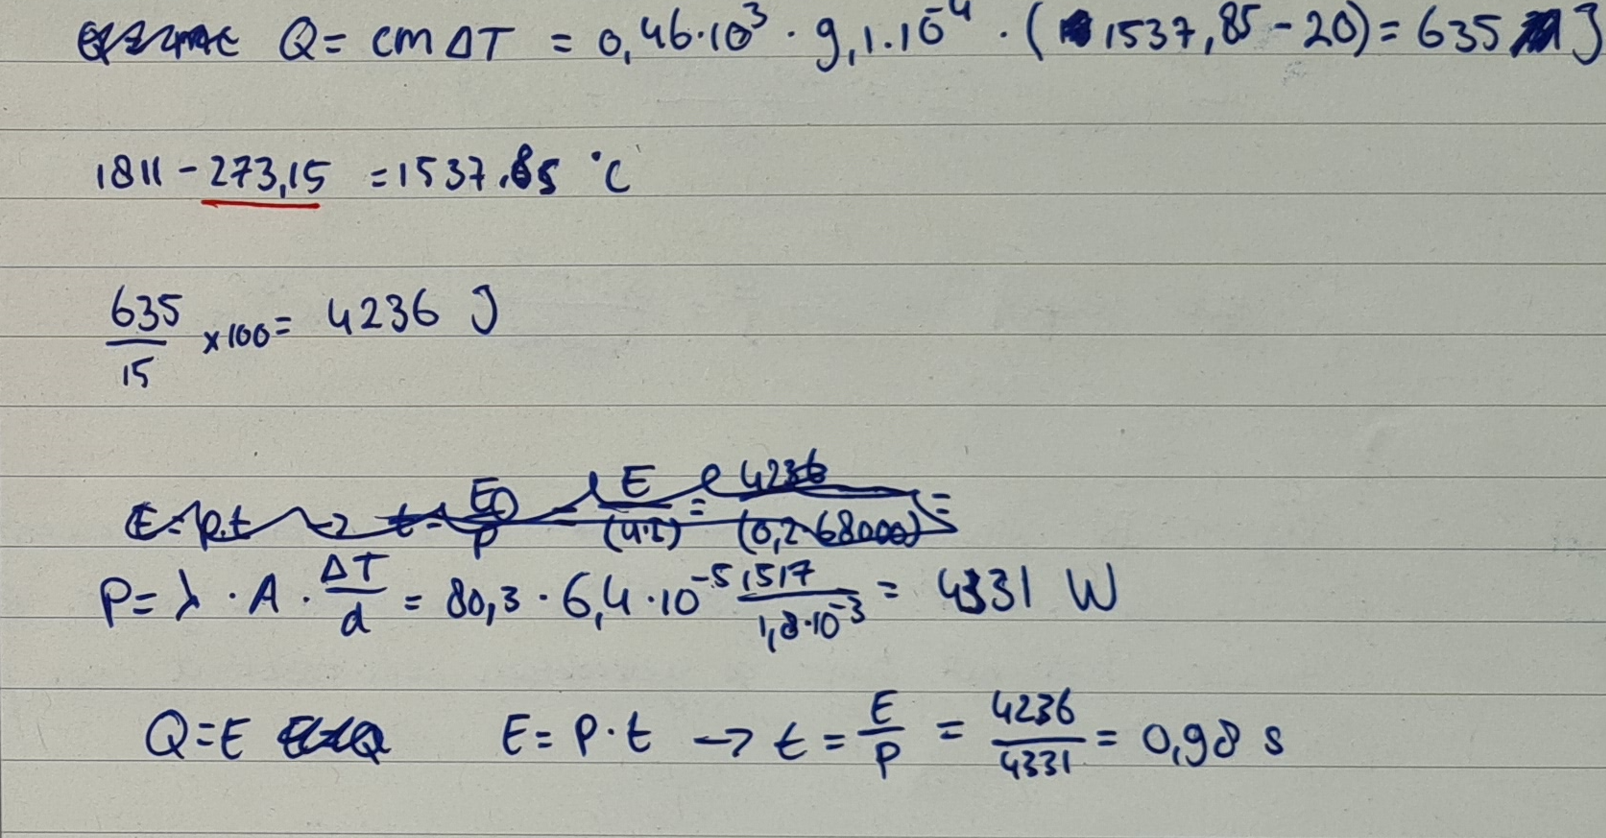 Q = cm ΔT = 0,46·10³ · 9,1·10⁻⁴ · (1537,85 - 20) = 635 J
1811 - 273,15 = 1537,85 °C
635/15 x100 = 4236 J
E = p.t → t = E/p = E/(U·I) = 4236/(0,2·68000) =
P = λ · A · ΔT/d = 80,3 · 6,4·10⁻⁵ 1517/1,8·10⁻³ = 4331 W
Q = E E = P·t → t = E/P = 4236/4331 = 0,98 s